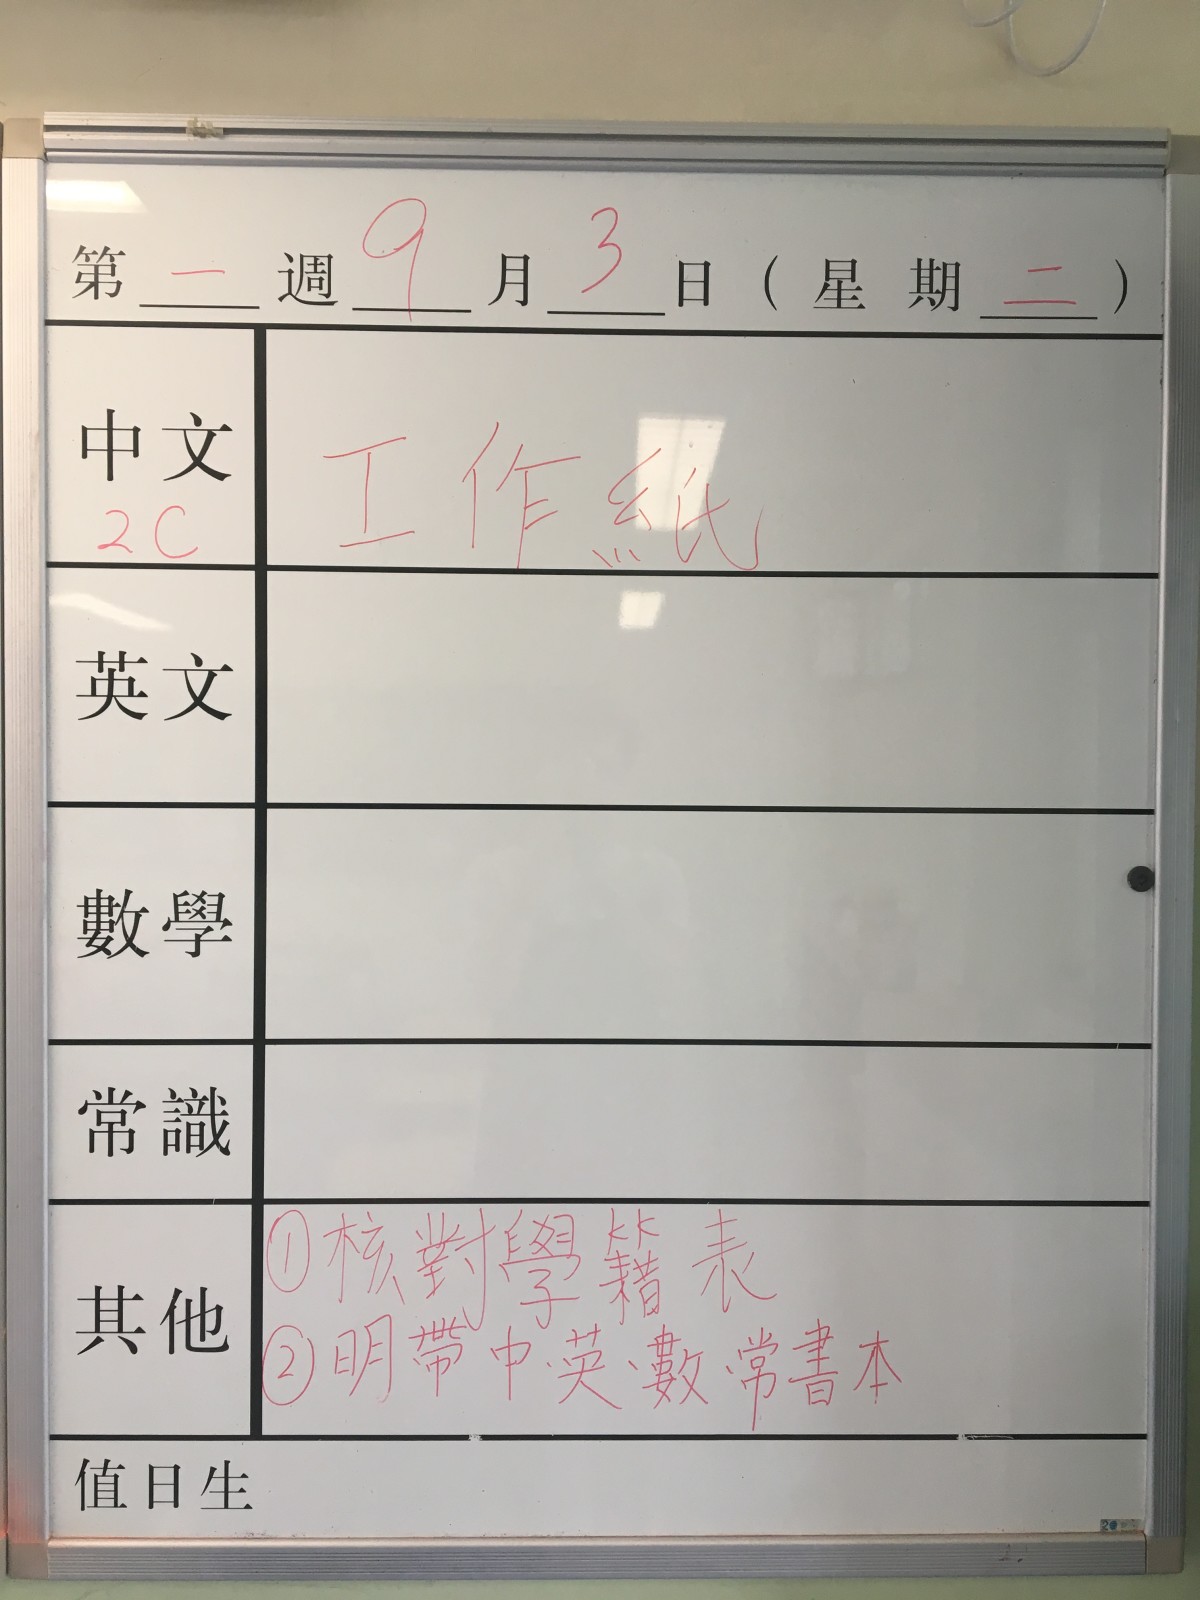 第一週9月3日(星期二)
中文 工作紙
2C
英文
數學
常識
其他 ①核對學籍表
②明帶中.英.數.常書本
值日生